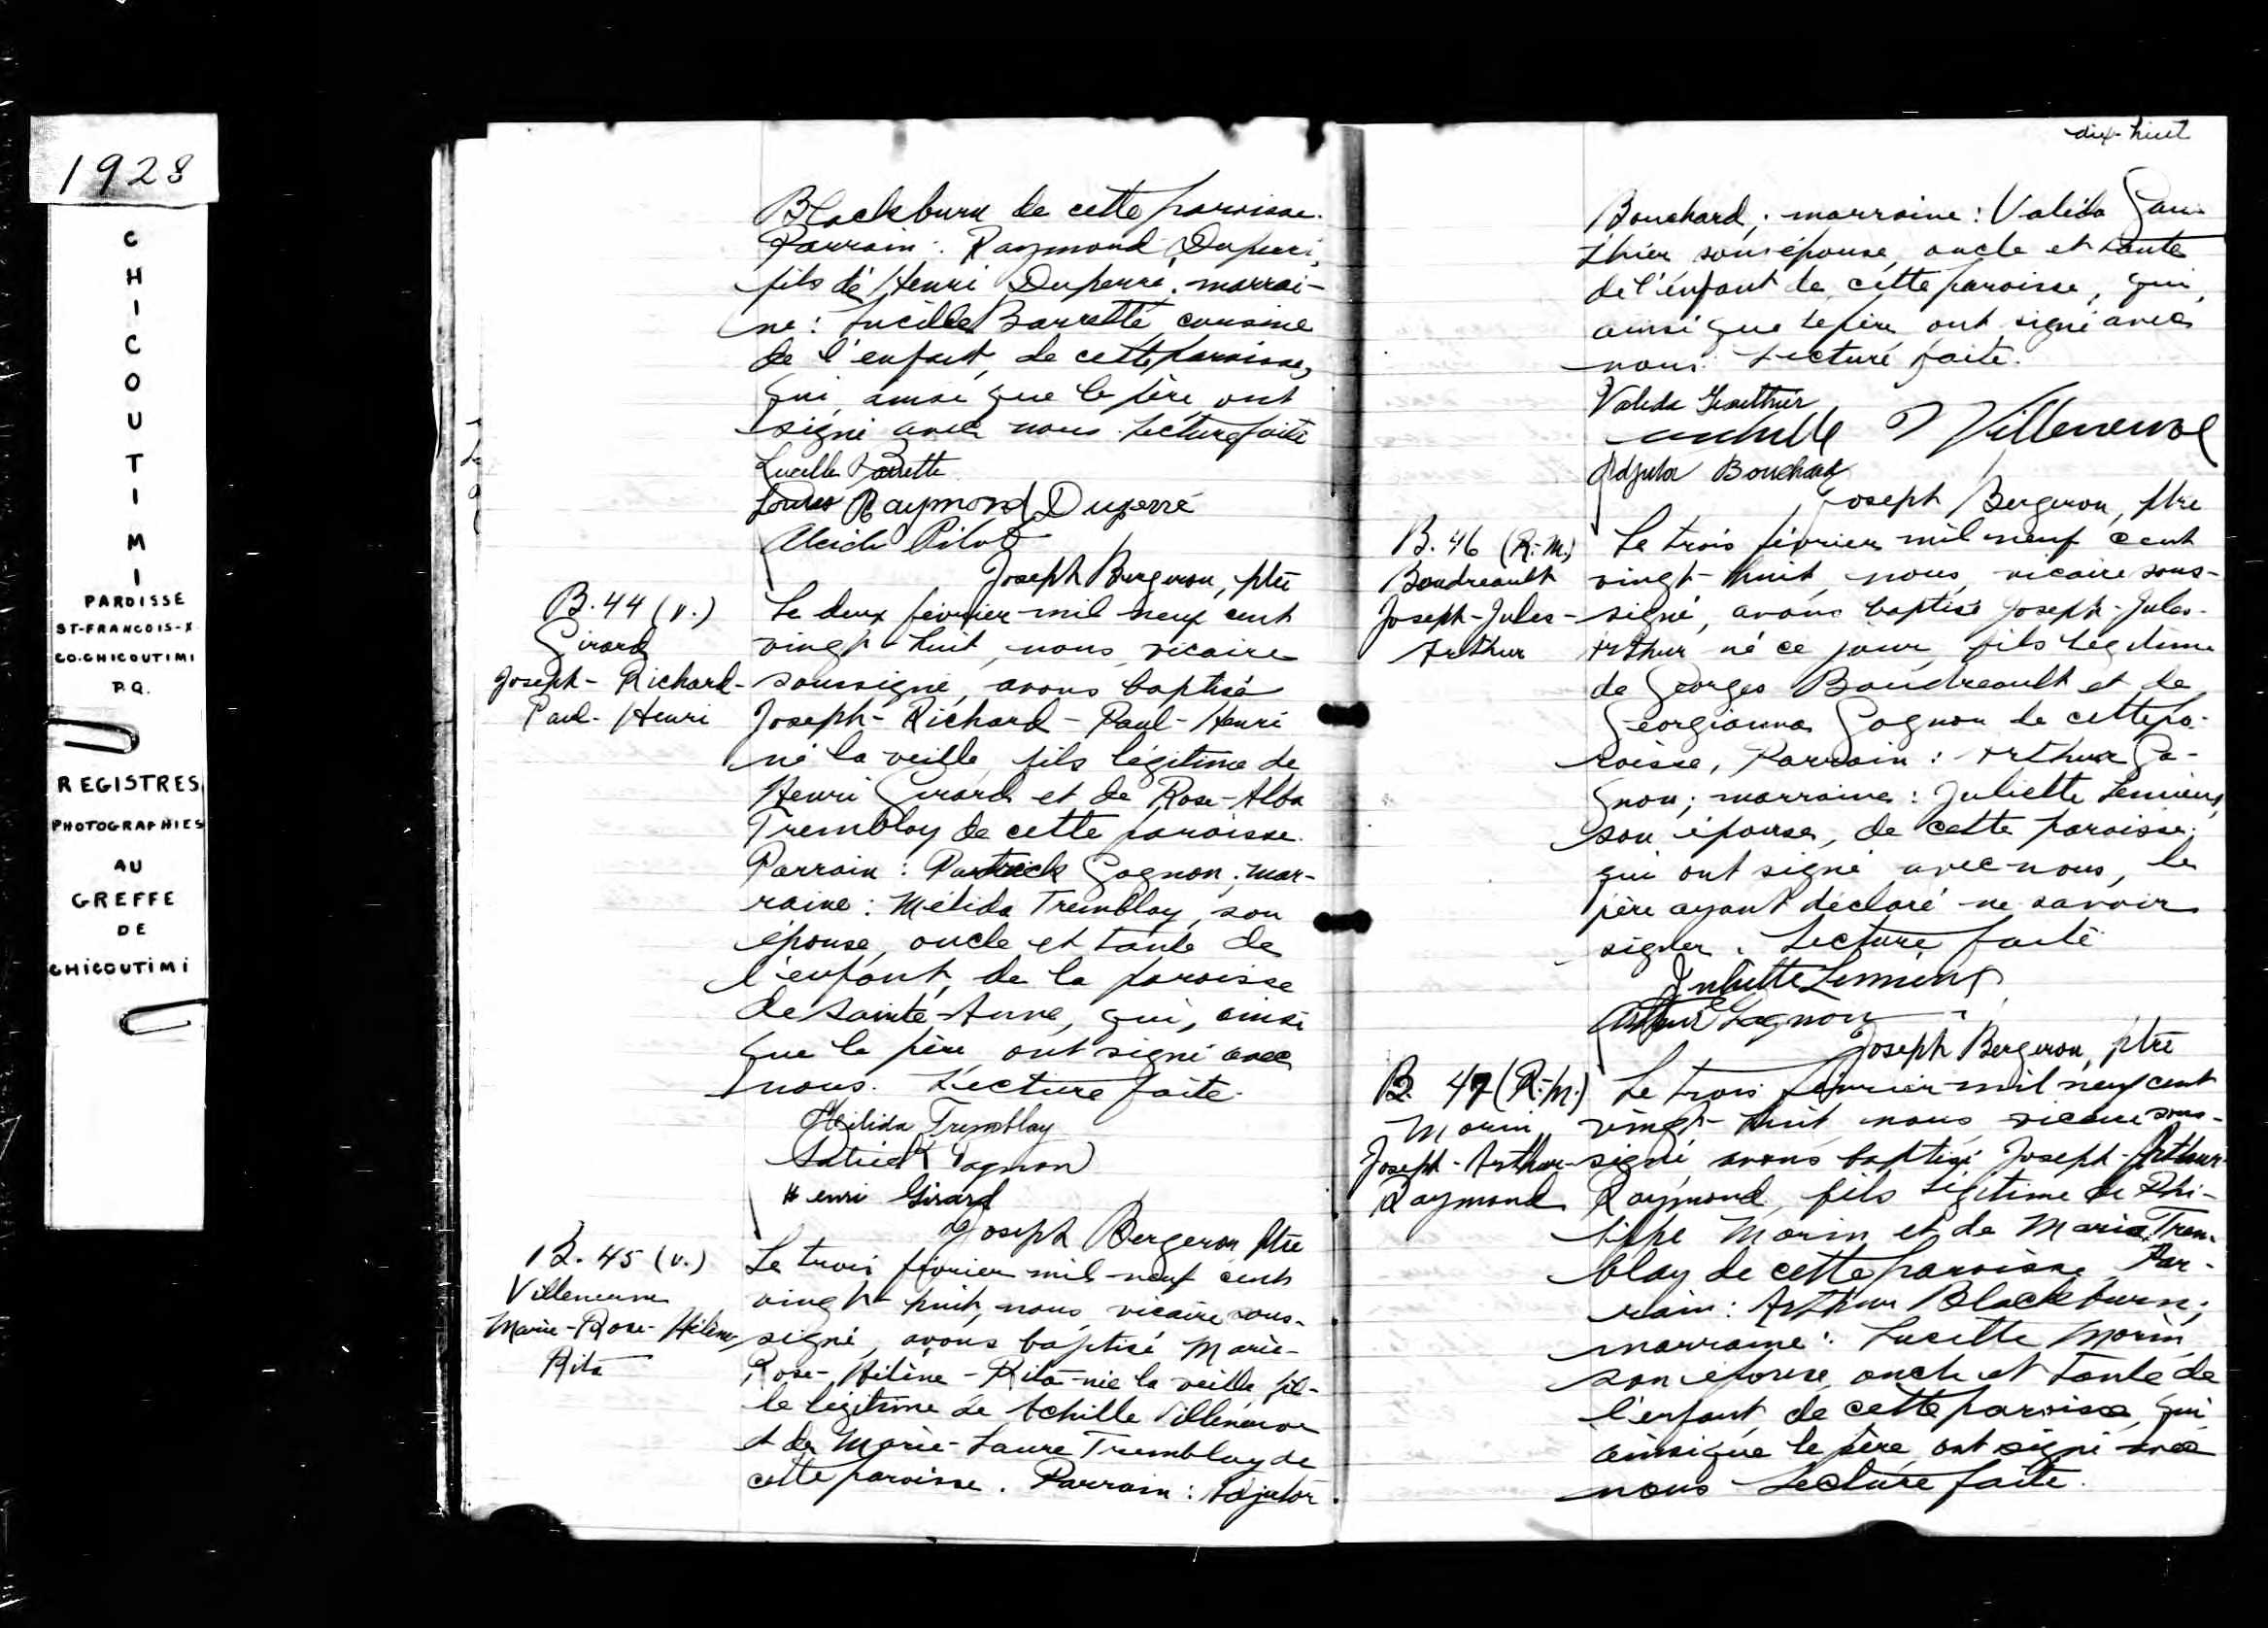 1928
CHICOUTIMI
PAROISSE
ST-FRANCOIS-X
CO. CHICOUTIMI
P.Q.
REGISTRES
PHOTOGRAPHIES
AU
GREFFE
DE
CHICOUTIMI
Blackburn de cette paroisse.
Parrain: Raymond Duperré,
fils de Henri Duperré, marrai-
ne: Lucille Barrette cousine
de l'enfant, de cette paroisse,
qui, ainsi que le père ont
signé avec nous. Lecture faite
Lucille Barette
Raymond Duperré
Alcide Pilot
Joseph Bergeron, ptre
B. 44 (v.)
Girard
Joseph-Richard-
Paul-Henri
Le deux février mil neuf cent
vingt-huit, nous, vicaire
soussigné, avons baptisé
Joseph-Richard-Paul-Henri
né la veille, fils légitime de
Henri Girard et de Rose-Alba
Tremblay de cette paroisse.
Parrain: Patrick Gagnon; mar-
raine: Mélida Tremblay, son
épouse, oncle et tante de
l'enfant, de la paroisse
de Sainte-Anne, qui, ainsi
que le père, ont signé avec
nous. Lecture faite.
Mélida Tremblay
Patrick Gagnon
Henri Girard
Joseph Bergeron ptre
B. 45 (v.)
Villeneuve
Marie-Rose-Hélène-
Rita
Le trois février mil neuf cent
vingt-huit, nous, vicaire sous-
signé, avons baptisé Marie-
Rose-Hélène-Rita née la veille, fil-
le légitime de Achille Villeneuve
et de Marie-Laure Tremblay de
cette paroisse. Parrain: Adjutor
dix-huit
Bouchard; marraine: Valéda Gau-
thier son épouse, oncle et tante
de l'enfant de cette paroisse, qui,
ainsi que le père ont signé avec
nous. Lecture faite.
Valeda Gauthier
Achille Villeneuve
Adjutor Bouchard
Joseph Bergeron, ptre
B. 46 (R.-M.)
Boudreault
Joseph-Jules-
Arthur
Le trois février mil neuf cent
vingt-huit, nous, vicaire sous-
signé, avons baptisé Joseph-Jules-
Arthur né ce jour, fils légitime
de Georges Boudreault et de
Georgianna Gagnon de cette pa-
roisse, Parrain: Arthur Ga-
gnon; marraine: Juliette Lemieux,
son épouse, de cette paroisse,
qui ont signé avec nous, le
père ayant déclaré ne savoir
signer. Lecture faite
Juliette Lemieux
Arthur Gagnon
Joseph Bergeron, ptre
B. 47 (R.-M.)
Morin
Joseph-Arthur-
Raymond
Le trois février mil neuf cent
vingt-huit, nous, vicaire sous-
signé, avons baptisé Joseph-Arthur-
Raymond, fils légitime de Phi-
lippe Morin et de Maria Trem-
blay de cette paroisse. Par-
rain: Arthur Blackburn;
marraine: Lucette Morin
son épouse, oncle et tante de
l'enfant, de cette paroisse, qui
ainsi que le père, ont signé avec
nous Lecture faite.